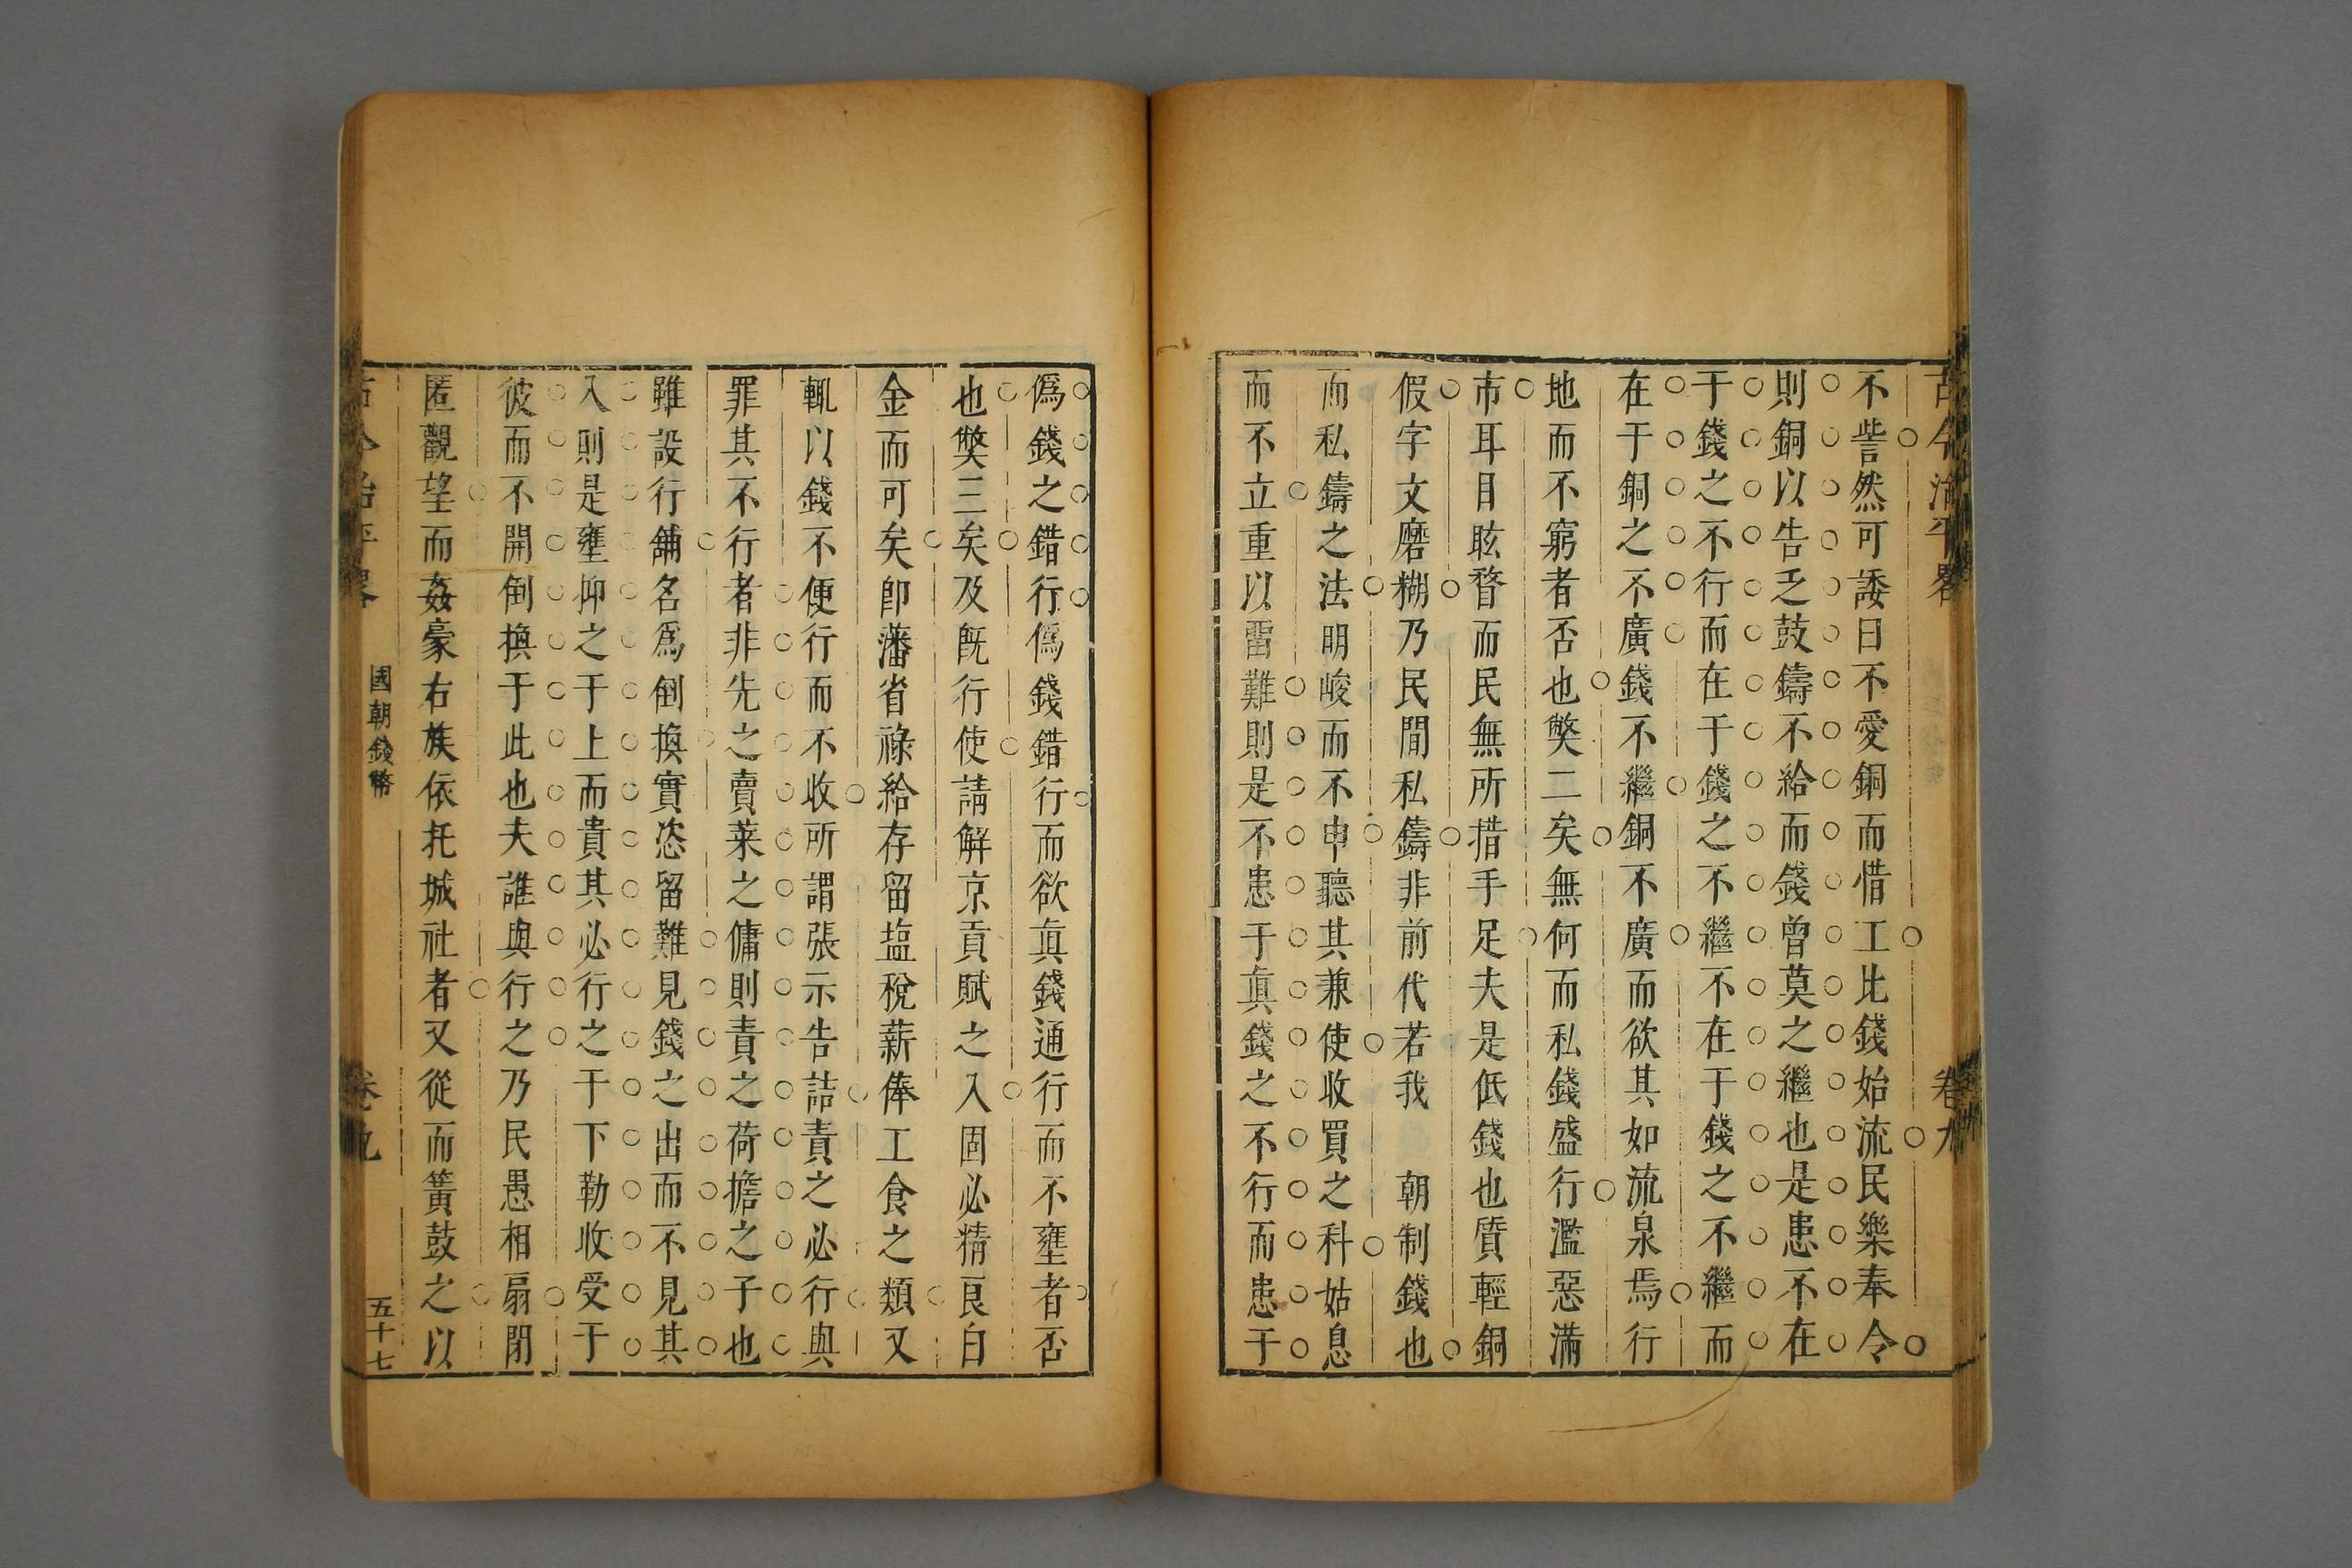 古今治平畧 卷九
不訾然可諉曰不愛銅而惜工比錢始流民樂奉令
則銅以告乏鼓鑄不給而錢曾莫之繼也是患不在
于錢之不行而在于錢之不繼不在于錢之不繼而
在于銅之不廣錢不繼銅不廣而欲其如流泉焉行
地而不窮者否也獘二矣無何而私錢盛行濫惡滿
市耳目眩瞀而民無所措手足夫是低錢也質輕銅
假字文磨糊乃民間私鑄非前代若我 朝制錢也
而私鑄之法明峻而不申聽其兼使收買之科姑息
而不立重以畱難則是不患于眞錢之不行而患于
僞錢之錯行僞錢錯行而欲眞錢通行而不壅者否
也獘三矣及旣行使請解京貢賦之入固必精良白
金而可矣卽藩省祿給存留塩稅薪俸工食之類又
輒以錢不便行而不收所謂張示告詰責之必行與
罪其不行者非先之賣菜之傭則責之荷擔之子也
雖設行舖名爲倒換實恣留難見錢之出而不見其
入則是壅抑之于上而貴其必行之于下勒收受于
彼而不開倒換于此也夫誰與行之乃民愚相扇閉
匿觀望而姦豪右族依托城社者又從而簧鼓之以
古今治平畧 國朝錢幣 卷九 五十七